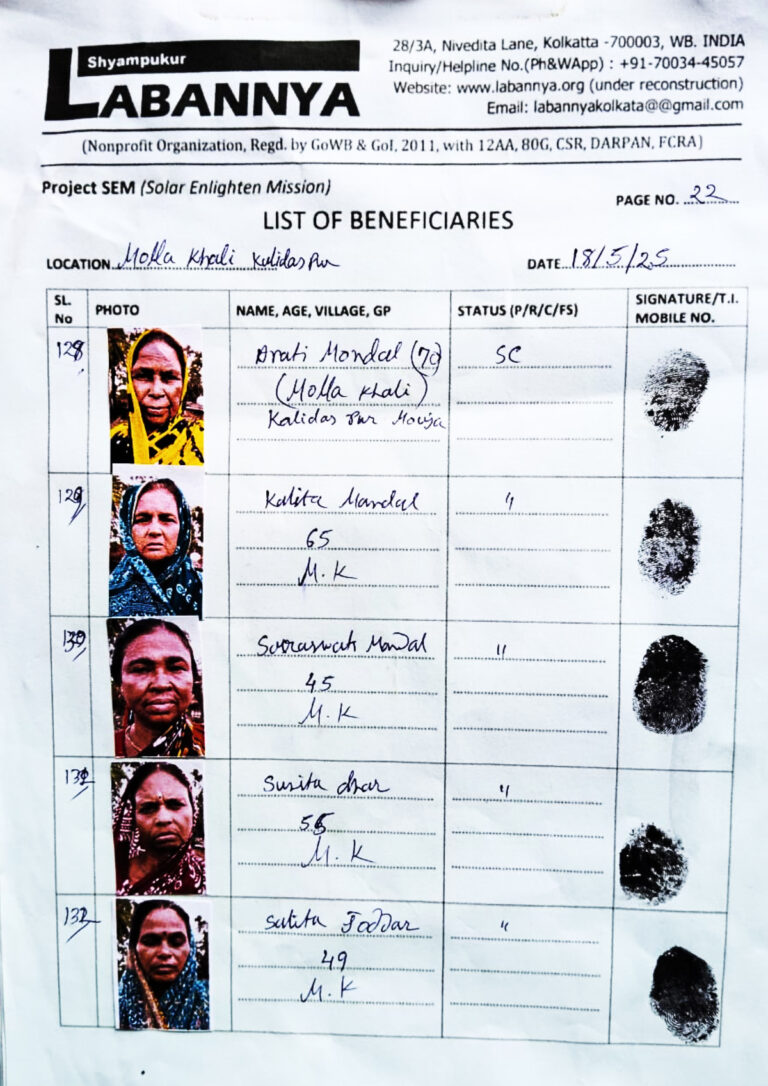 Shyampukur
LABANNYA
28/3A, Nivedita Lane, Kolkatta -700003, WB. INDIA
Inquiry/Helpline No.(Ph&WApp) : +91-70034-45057
Website: www.labannya.org (under reconstruction)
Email: labannyakolkata@@gmail.com
(Nonprofit Organization, Regd. by GoWB & GoI, 2011, with 12AA, 80G, CSR, DARPAN, FCRA)
Project SEM (Solar Enlighten Mission)
PAGE NO. 22
LIST OF BENEFICIARIES
LOCATION Molla Khali Kalidas Pur
DATE 18/5/25
SL. No
PHOTO
NAME, AGE, VILLAGE, GP
STATUS (P/R/C/FS)
SIGNATURE/T.I.
MOBILE NO.
128
Arati Mondal (70)
SC
(Molla Khali)
Kalidas Pur Mouja
129
Kalita Mandal
"
65
M. K
130
Soraswati Mondal
"
45
M. K
131
Susita dhar
"
55
M. K
132
Sulita Joddar
"
49
M. K